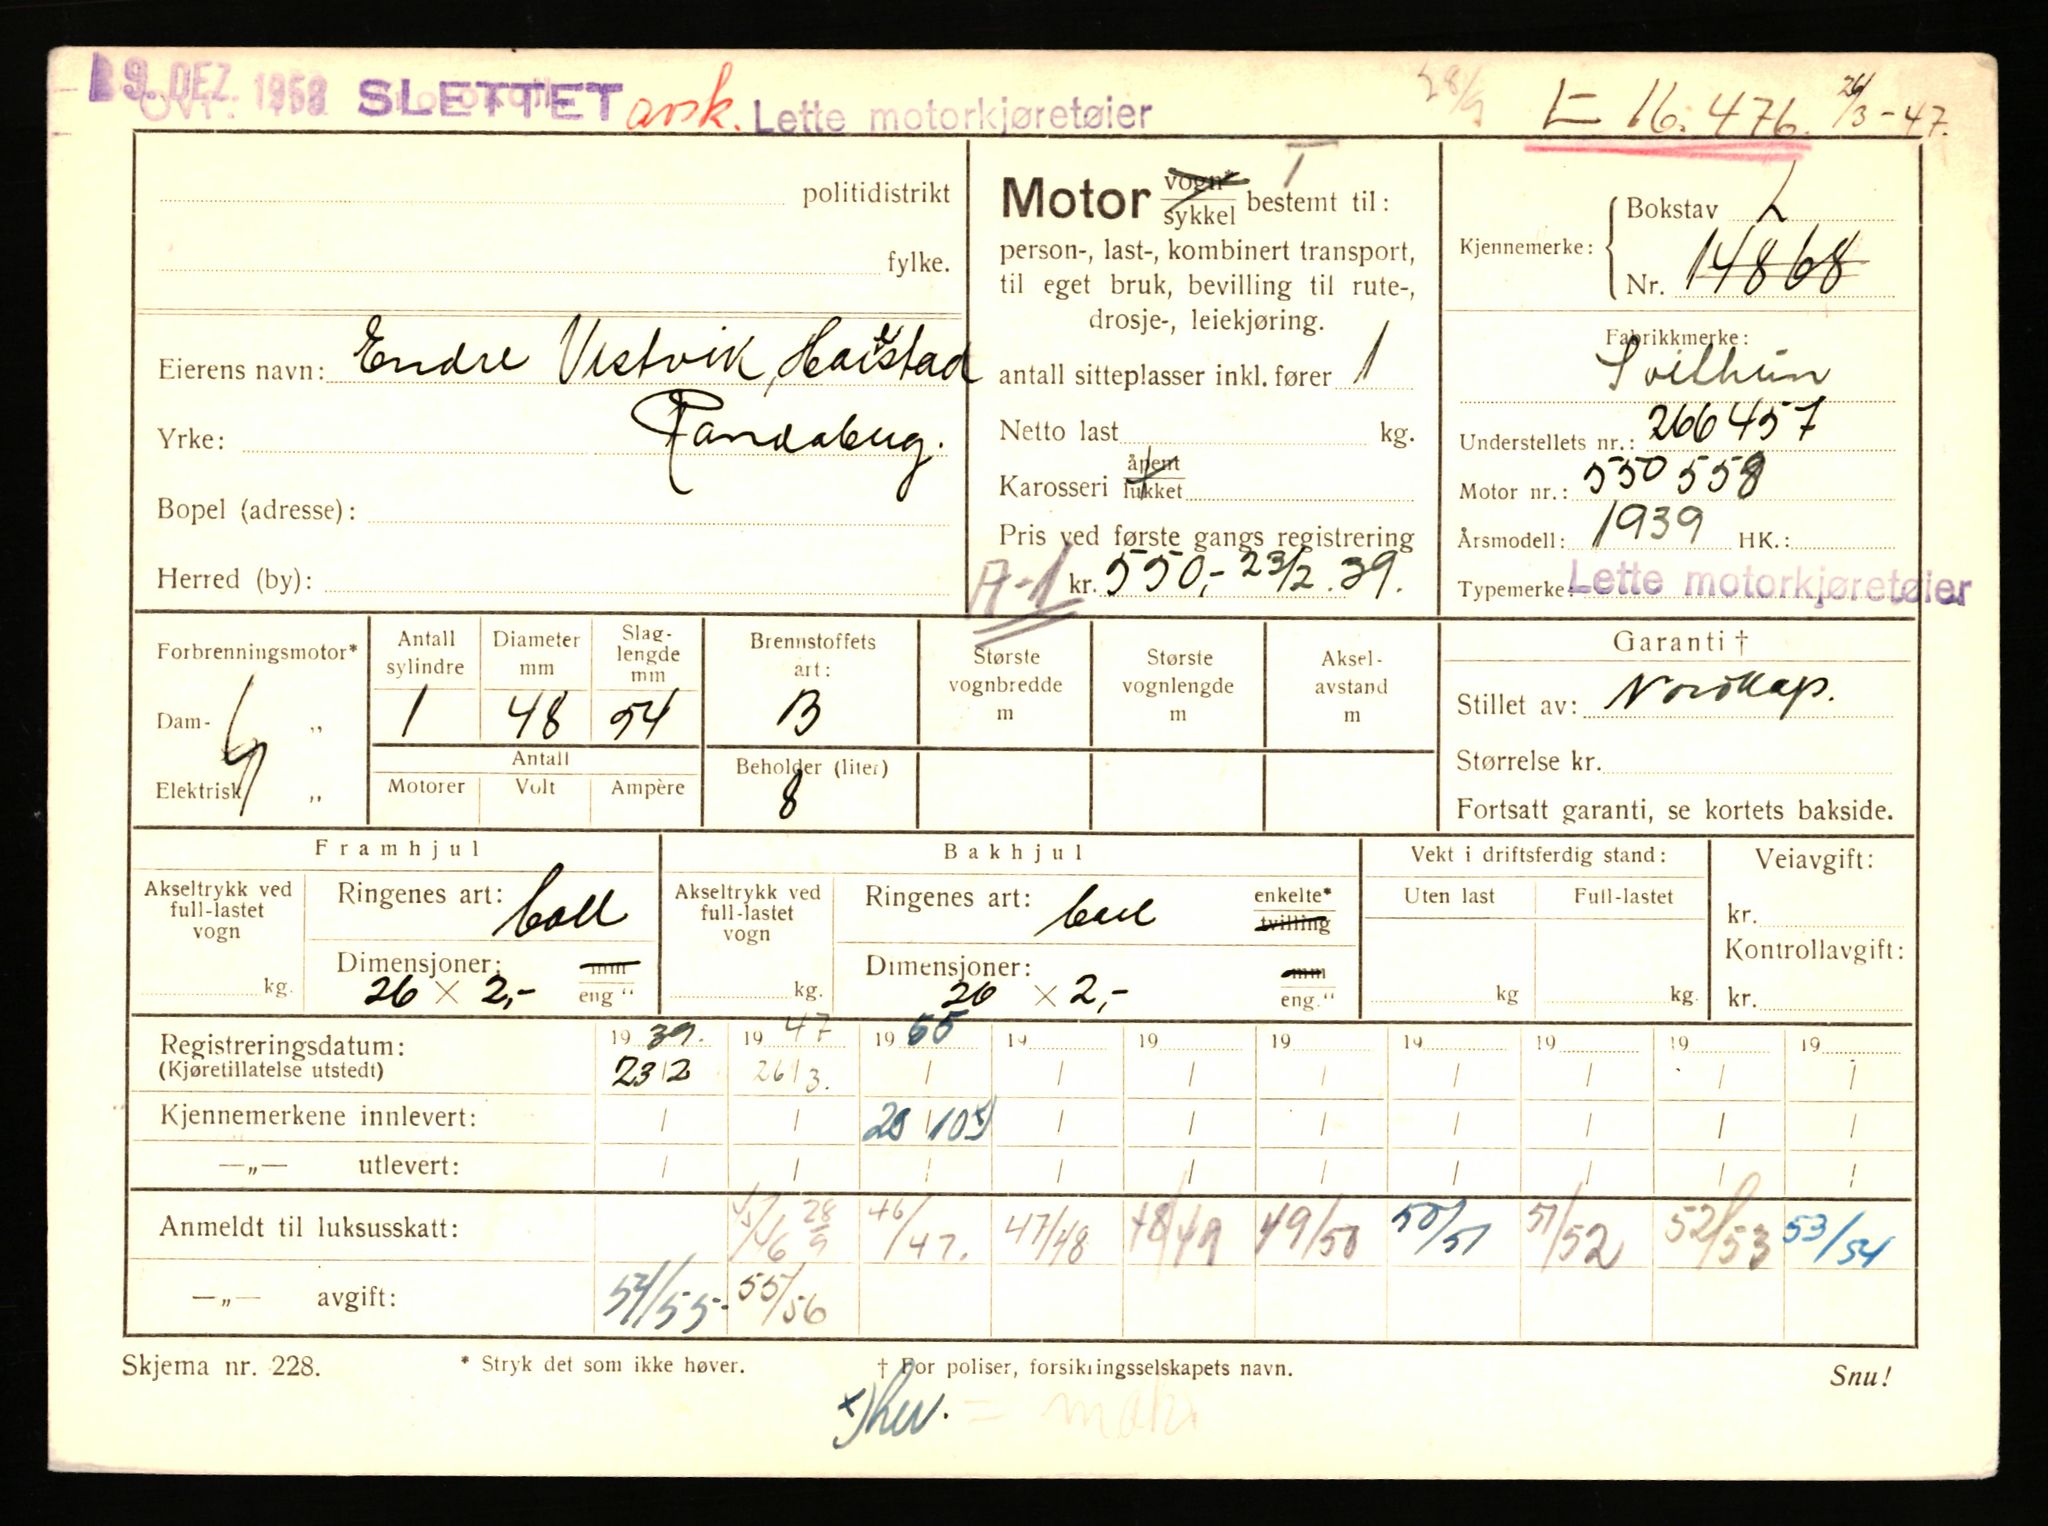 9. DEZ. 1958 SLETTET avsk. Lette motorkjøretøier 28/9 L 16.476. 26/3-47.
politidistrikt
fylke.
Eierens navn: Endre Vestvik, Harestad
Yrke: Randaberg.
Bopel (adresse):
Herred (by):
Motor vogn* sykkel bestemt til: T
person-, last-, kombinert transport,
til eget bruk, bevilling til rute-,
drosje-, leiekjøring.
antall sitteplasser inkl. fører 1
Netto last kg.
Karosseri åpent lukket
Pris ved første gangs registrering
A-1 kr. 550,- 23/2.39.
Kjennemerke: Bokstav L
Nr. 14868
Fabrikkmerke:
Svithun
Understellets nr.: 266457
Motor nr.: 550558
Årsmodell: 1939 HK.:
Typemerke: Lette motorkjøretøier
Forbrenningsmotor*
Dam- „
Elektrisk „
Antall sylindre 1
Diameter mm 48
Slag-lengde mm 54
Antall
Motorer Volt Ampère
Brennstoffets art: B
Beholder (liter) 8
Største vognbredde m
Største vognlengde m
Aksel-avstand m
Garanti †
Stillet av: Nordkap.
Størrelse kr.
Fortsatt garanti, se kortets bakside.
Framhjul
Akseltrykk ved full-lastet vogn kg.
Ringenes art: Ball
Dimensjoner: mm
26 × 2,- eng "
Bakhjul
Akseltrykk ved full-lastet vogn kg.
Ringenes art: Ball enkelte* tvilling
Dimensjoner: mm
26 × 2,- eng."
Vekt i driftsferdig stand:
Uten last Full-lastet
kg kg.
Veiavgift:
kr.
Kontrollavgift:
kr.
Registreringsdatum: 19 39. 19 47 19 55 19 19 19 19 19 19 19
(Kjøretillatelse utstedt) 23/2 26/3. / / / / / / / /
Kjennemerkene innlevert: / / 28/10 / / / / / / /
—„— utlevert: / / / / / / / / / /
Anmeldt til luksusskatt: 45/46 28/9 46/47. 47/48 48/49 49/50 50/51 51/52 52/53 53/54
—„— avgift: 54/55- 55/56
Skjema nr. 228. * Stryk det som ikke høver. † For poliser, forsikringsselskapets navn. Snu!